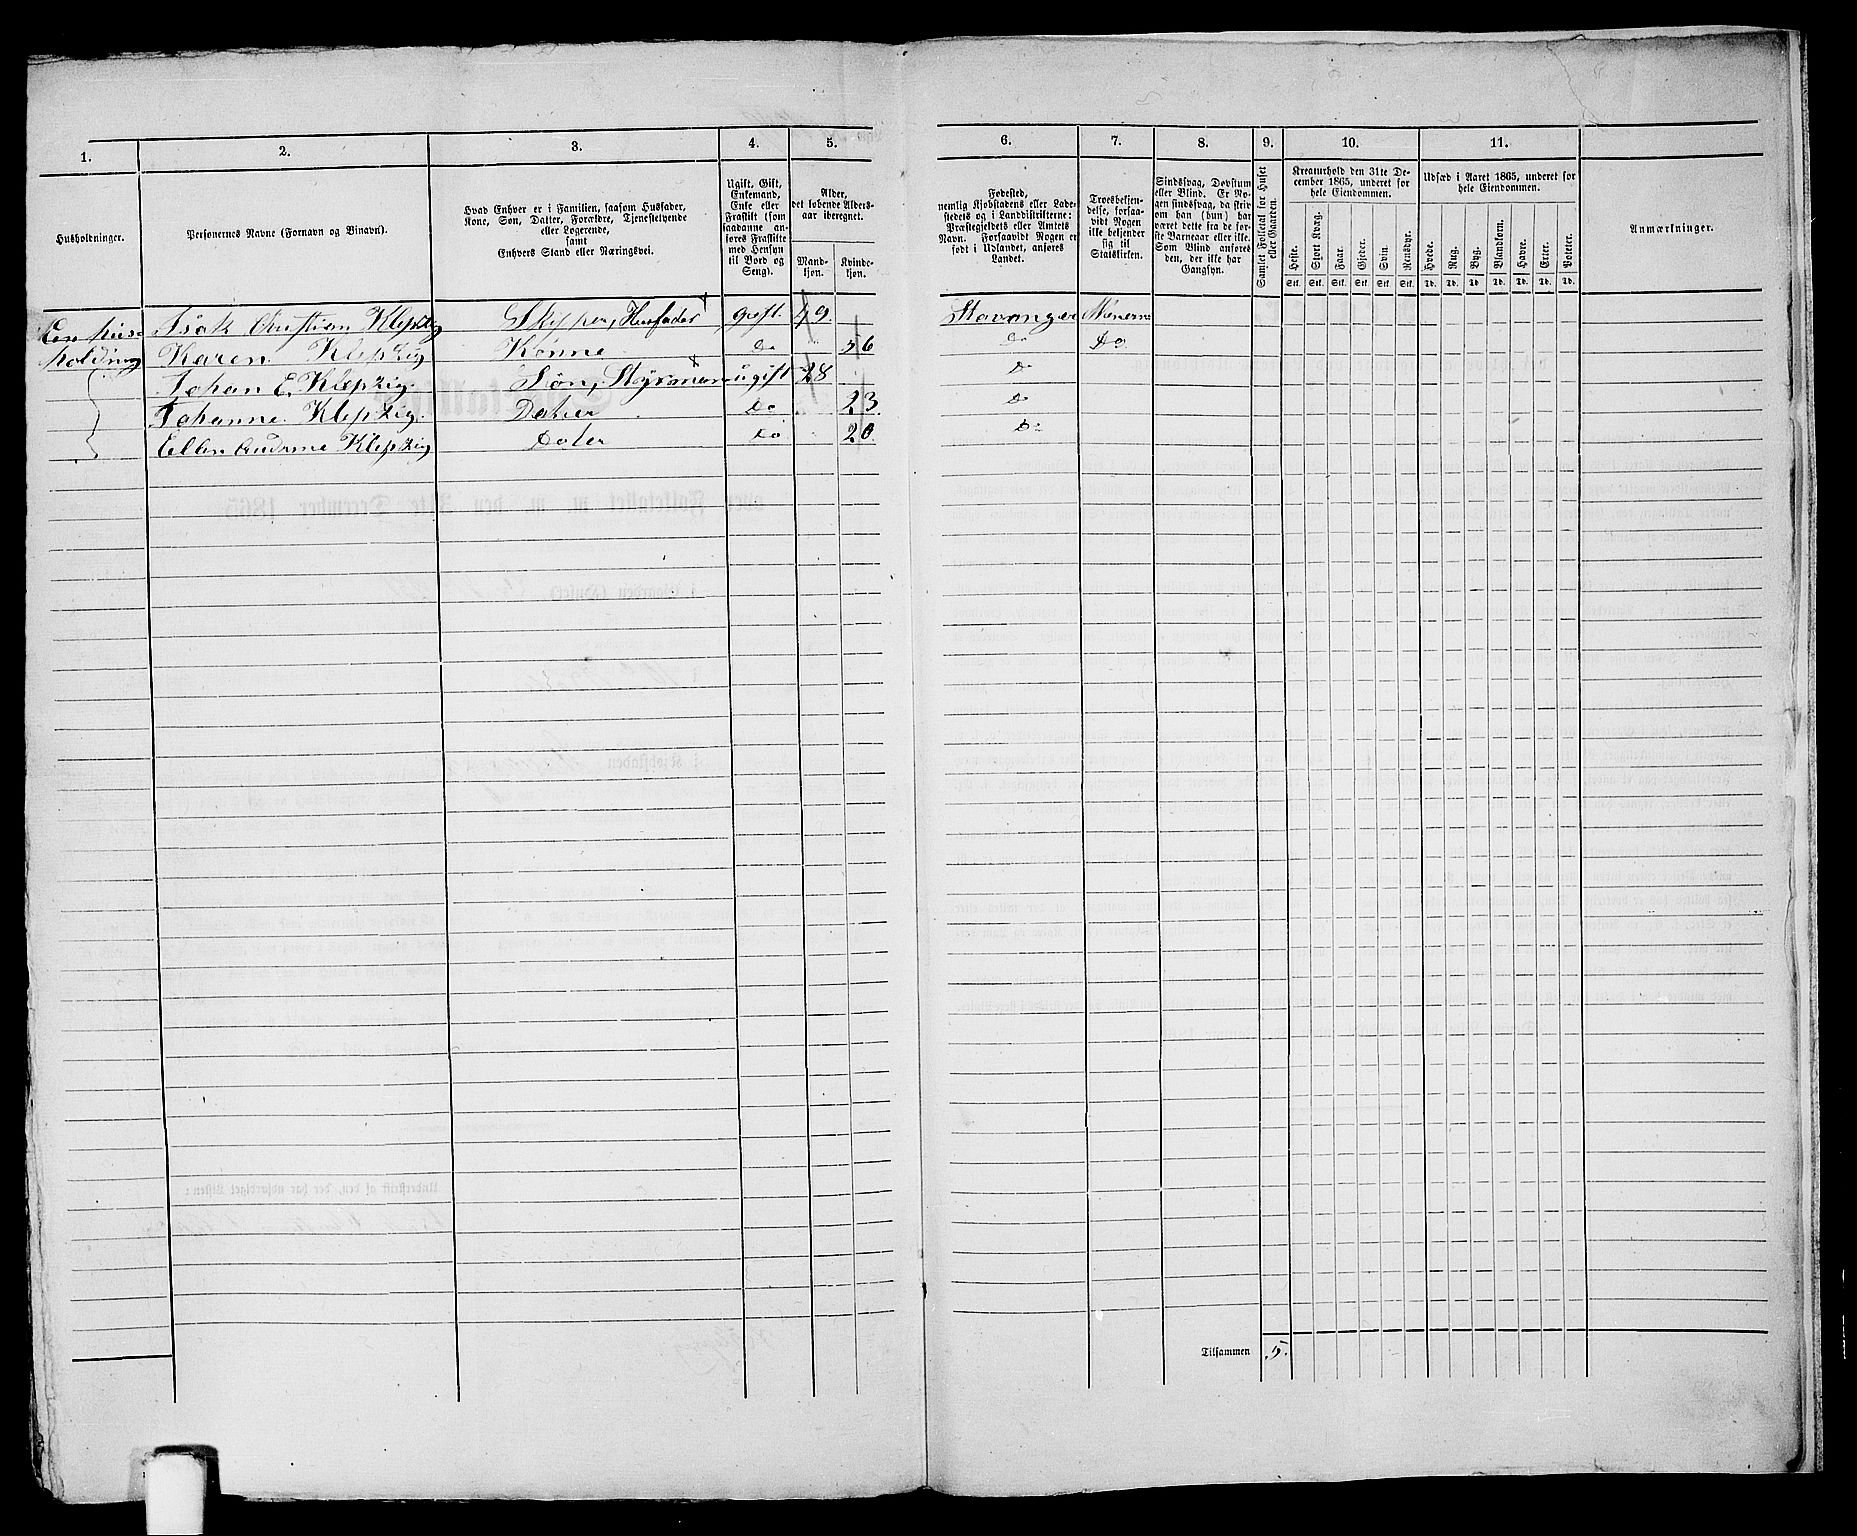 1. 2. 3. 4. 5. 6. 7. 8. 9. 10. 11.
Husholdninger.
Personernes Navne (Fornavn og Binavn).
Hvad Enhver er i Familien, saasom Husfader,
Kone, Søn, Datter, Forældre, Tjenestetyende
eller Logerende,
samt
Enhvers Stand eller Næringsvei.
Ugift, Gift,
Enkemand,
Enke eller
Fraskilt (som
saadanne an-
føres Fraskilte
med Hensyn
til Bord og
Seng).
Alder,
det løbende Alders-
aar iberegnet.
Mand-
kjøn.
Kvinde-
kjøn.
Fødested,
nemlig Kjøbstadens eller Lade-
stedets og i Landdistrikterne:
Præstegjeldets eller Amtets
Navn. Forsaavidt Nogen er
født i Udlandet, anføres
Landet.
Troesbekjen-
delse, forsaa-
vidt Nogen
ikke bekjender
sig til
Statskirken.
Sindssvag, Døvstum
eller Blind. Er No-
gen sindssvag, da skriv
om han (hun) har
været dette fra de før-
ste Barneaar eller ikke.
Som Blind anføres
den, der ikke har
Gangsyn.
Samlet Folketal for Huset
eller Gaarden.
Kreaturhold den 31te De-
cember 1865, underet for
hele Eiendommen.
Heste. Stort Kvæg. Faar. Gjeder. Svin. Rensdyr.
Stk. Stk. Stk. Stk. Stk. Stk.
Udsæd i Aaret 1865, underet for
hele Eiendommen.
Hvede. Rug. Byg. Blandkorn. Havre. Erter. Poteter.
Td. Td. Td. Td. Td. Td. Td.
Anmærkninger.
Een huus Isak Christian Klepzig Skipper, Husfader gift 49 Stavanger
holding Karen Klepzig Konne Do 56 Do Do
Johan E. Klepzig. Søn, Styrsman ugift 28 Do
Johanne Klepzig. Dater Do 23 Do
Ellen Klepzig Dater Do 20 Do
Tilsammen 5.